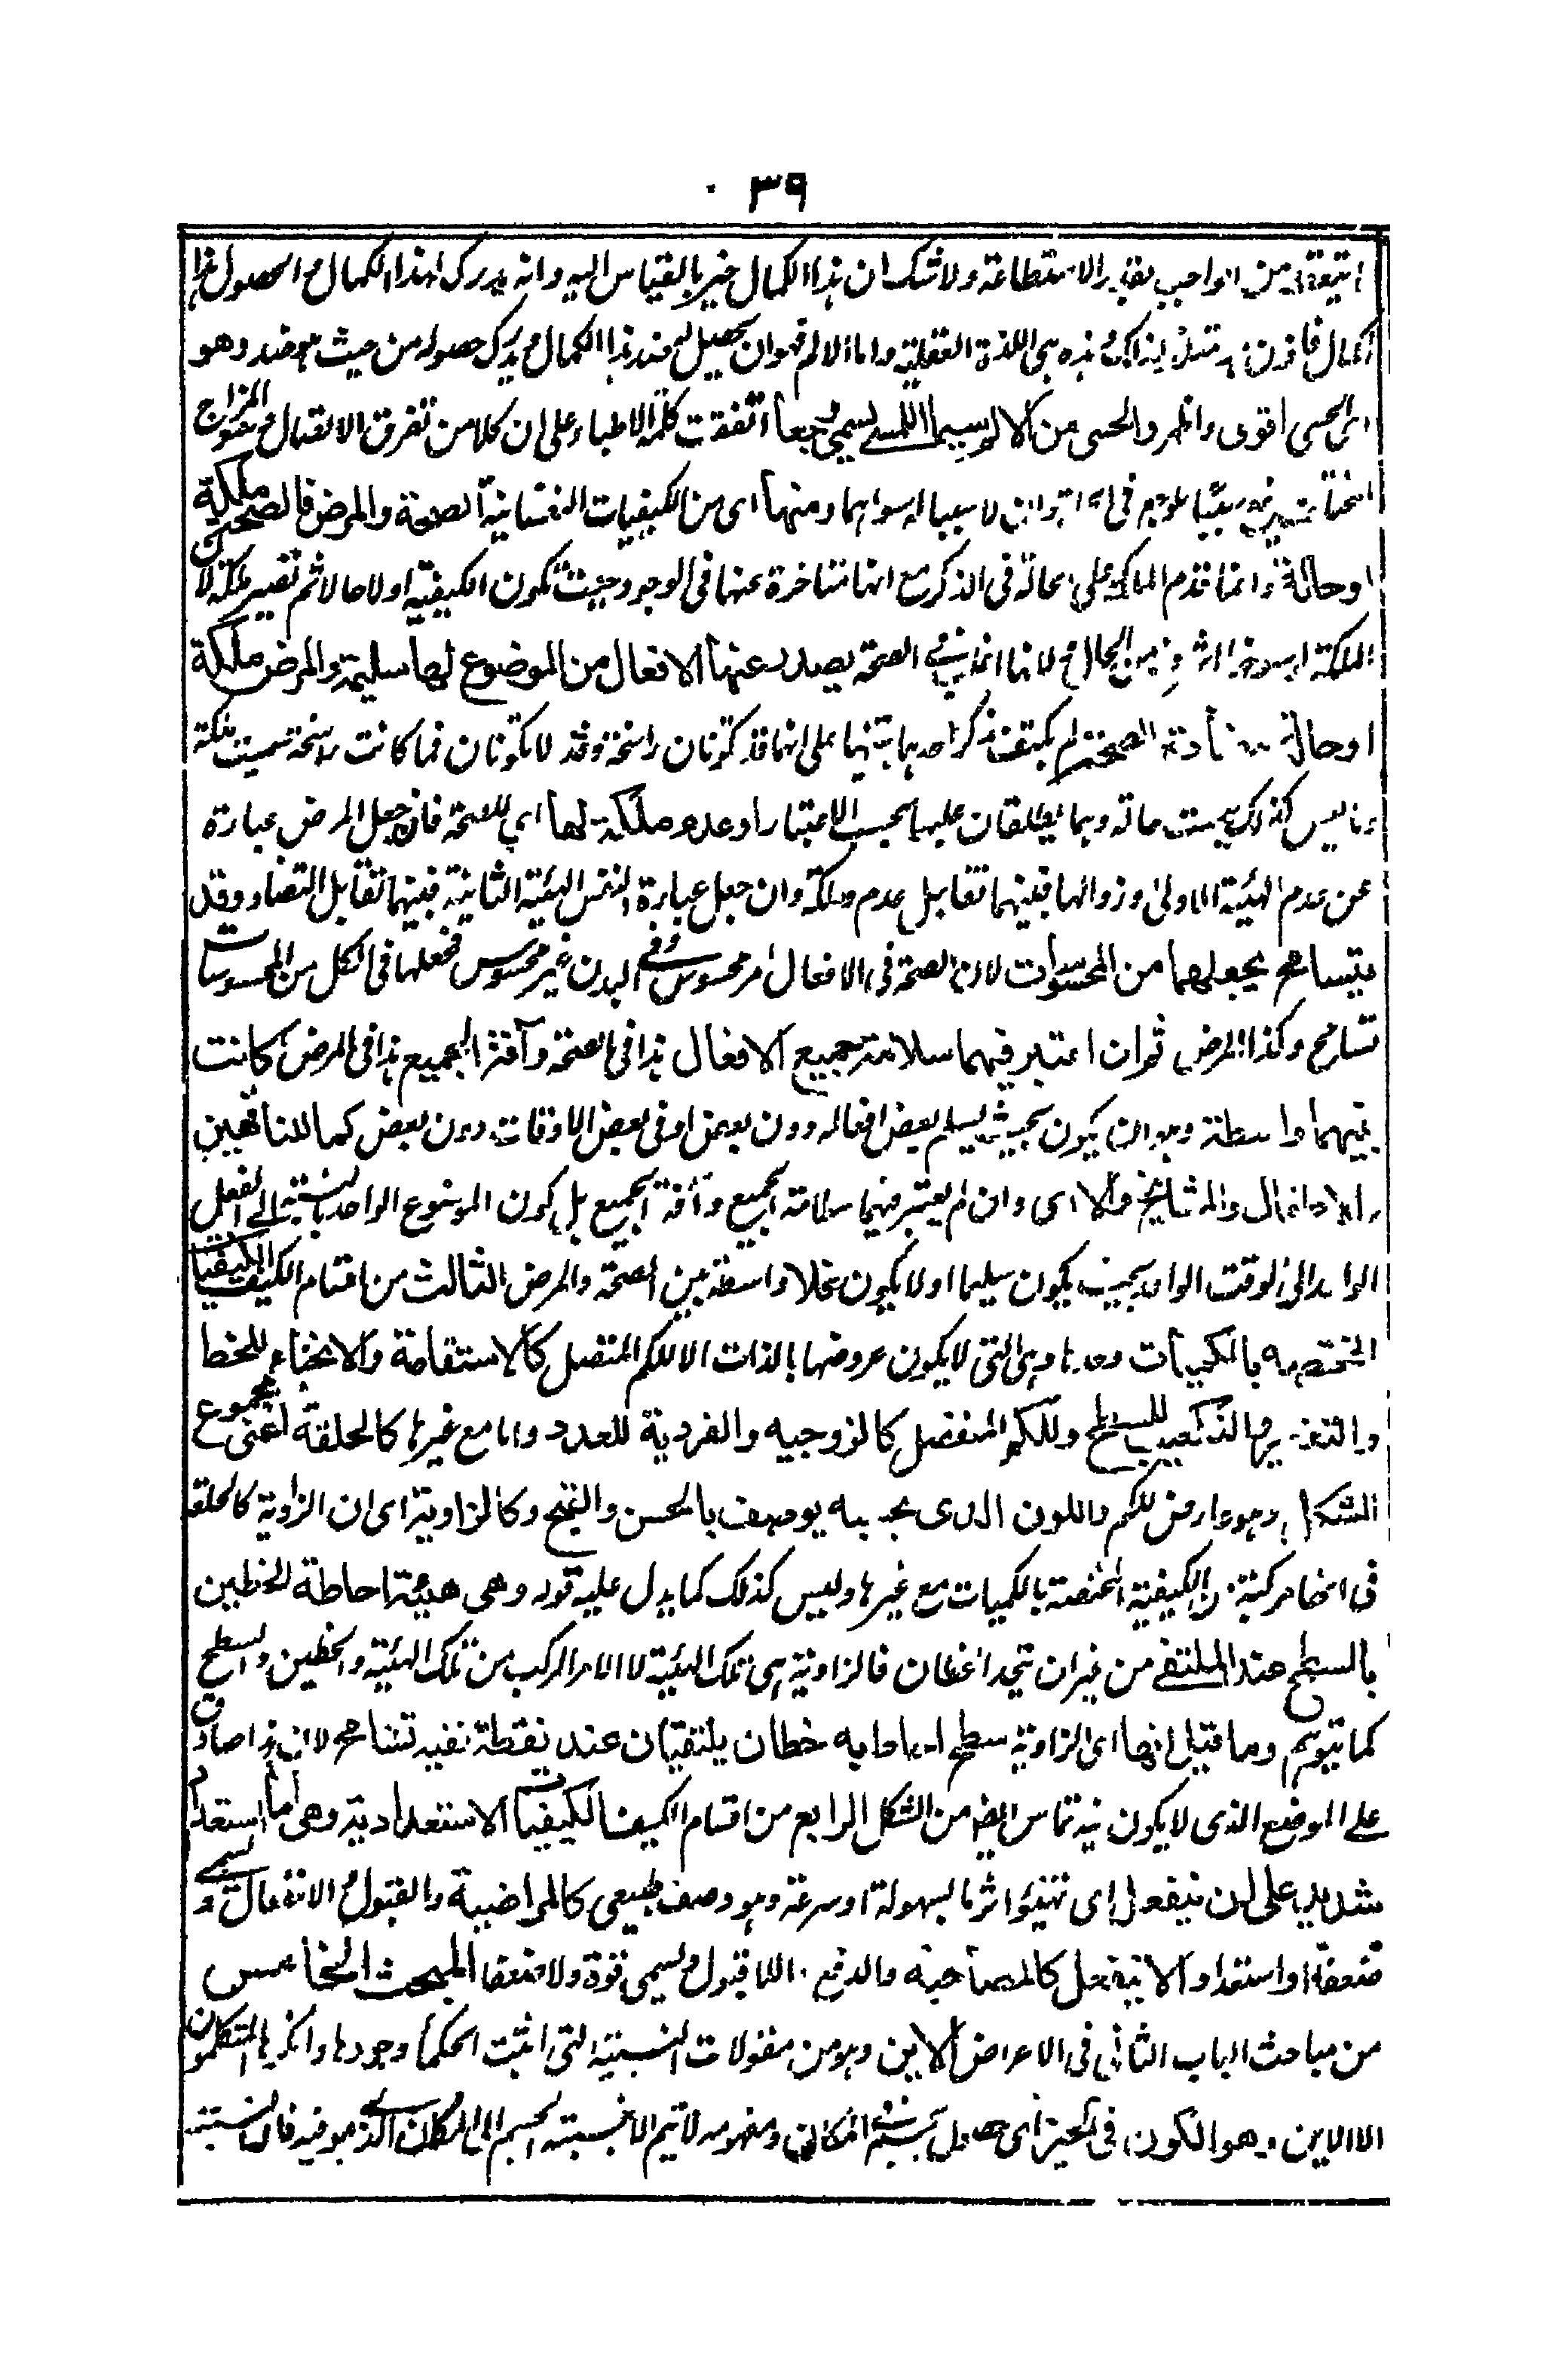 ٣٩
من الواجب بقدر الاستطاعة ولا شك ان هذا الكمال خير بالقياس اليه وانه يدرك لهذا الكمال و الحصول هذا
الكمال فاذن بذلك هذه هي اللذة العقلية واما الالم فهو ان يحصل له ضد هذا الكمال و يدرك حصوله من حيث هو ضد وهو
الحسى اقوى واظهر والحسى من الالم سيما اللمسى يسمى وجعا اتفقت كلمة الاطباء على ان كلا من تفرق الاتصال وسوء المزاج
المختلف سببا للوجع فى لا سببا له سواهما ومنها اى من الكيفيات النفسانية الصحة والمرض فالصحة ملكة
او حالة وانما قدم الملكة على الحالة فى الذكر مع انها متاخرة عنها فى الوجود حيث تكون الكيفية اولا حالا ثم تصير ملكة لان
الملكة من الحال الصحة يصدر عنها الافعال من الموضوع لها سليمة والمرض ملكة
او حالة الصحة لم يكتف بذكر احدهما تنبيها على انهما قد تكونان راسخة وقد لا تكونان فما كانت راسخة سميت ملكة
وما ليس كذلك سميت حالة وهما يطلقان عليها بحسب الاعتبار او عدم ملكة لها اى للصحة فان جعل المرض عبارة
عن عدم الهيئة الاولى وزوالها فبينهما تقابل عدم وملكة وان جعل عبارة النفس الهيئة الثانية فبينهما تقابل التضاد وقد
يتسامح بجعلهما من المحسوسات لان الصحة فى الافعال امر محسوس وفى البدن غير محسوس فجعلها فى الكل من المحسوسات
تسامح وكذا المرض ثم ان اعتبر فيهما سلامة جميع الافعال هذا فى الصحة وآفة الجميع هذا فى المرض كانت
بينهما واسطة وهو ان يكون بحيث يسلم بعض افعاله دون بعض او فى بعض الاوقات دون بعض كما للناقهين
والاطفال والمشايخ والا اى وان لم يعتبر فيهما سلامة الجميع وآفة الجميع بل كون الموضوع الواحد بالنسبة الى الفعل
الواحد الى الوقت الواحد بحيث يكون سليما او لا يكون فلا واسطة بين الصحة والمرض الثالث من اقسام الكيف الكيفيات
المختصة بالكميات وحدها وهى التى لا يكون عروضها بالذات الا للكم المتصل كالاستقامة والانحناء للخط
والتقعير والتكعيب للسطح وللكم المنفصل كالزوجيه والفردية للعدد واما مع غيرها كالحلقة اعنى مجموع
الشكل وهو عارض للكم واللون الذى بحسبه يوصف بالحسن والقبح وكالزاوية اى ان الزاوية كالحلقة
فى انها مركبة من الكيفية المختصة بالكميات مع غيرها وليس كذلك كما يدل عليه قوله وهى هيئة احاطة الخطين
بالسطح عند الملتقى من غير ان يتحد الخطان فالزاوية هى تلك الهيئة لا الامر المركب من تلك الهيئة والخطين والسطح
كما يتوهم وما قيل انها اى الزاوية سطح احاط به خطان يلتقيان عند نقطة ففيه تسامح لان هذا صادق
على الموضع الذى لا يكون فيه تماس ايضا من الشكل الرابع من اقسام الكيف الكيفيات الاستعدادية وهى اما استعداد
شديد على ان ينفعل اى تهيؤ اثرما بسهولة او سرعة وهو وصف طبيعى كالمراضية والقبول و الانفعال ويسمى
ضعفا او استعداد الا ينفعل كالمصحاحية والدفع . اللا قبول و يسمى قوة ولا ضعفا المبحث الخامس
من مباحث الباب الثانى فى الاعراض الاين وهو من مقولات النسبية التى اثبت الحكماء وجودها وانكرها المتكلمون
الا الاين وهو الكون فى الحيز اى حصول الجسم فى المكان ومفهومه لا يتم الا بنسبة الجسم الى المكان الذى هو فيه فان نسبته